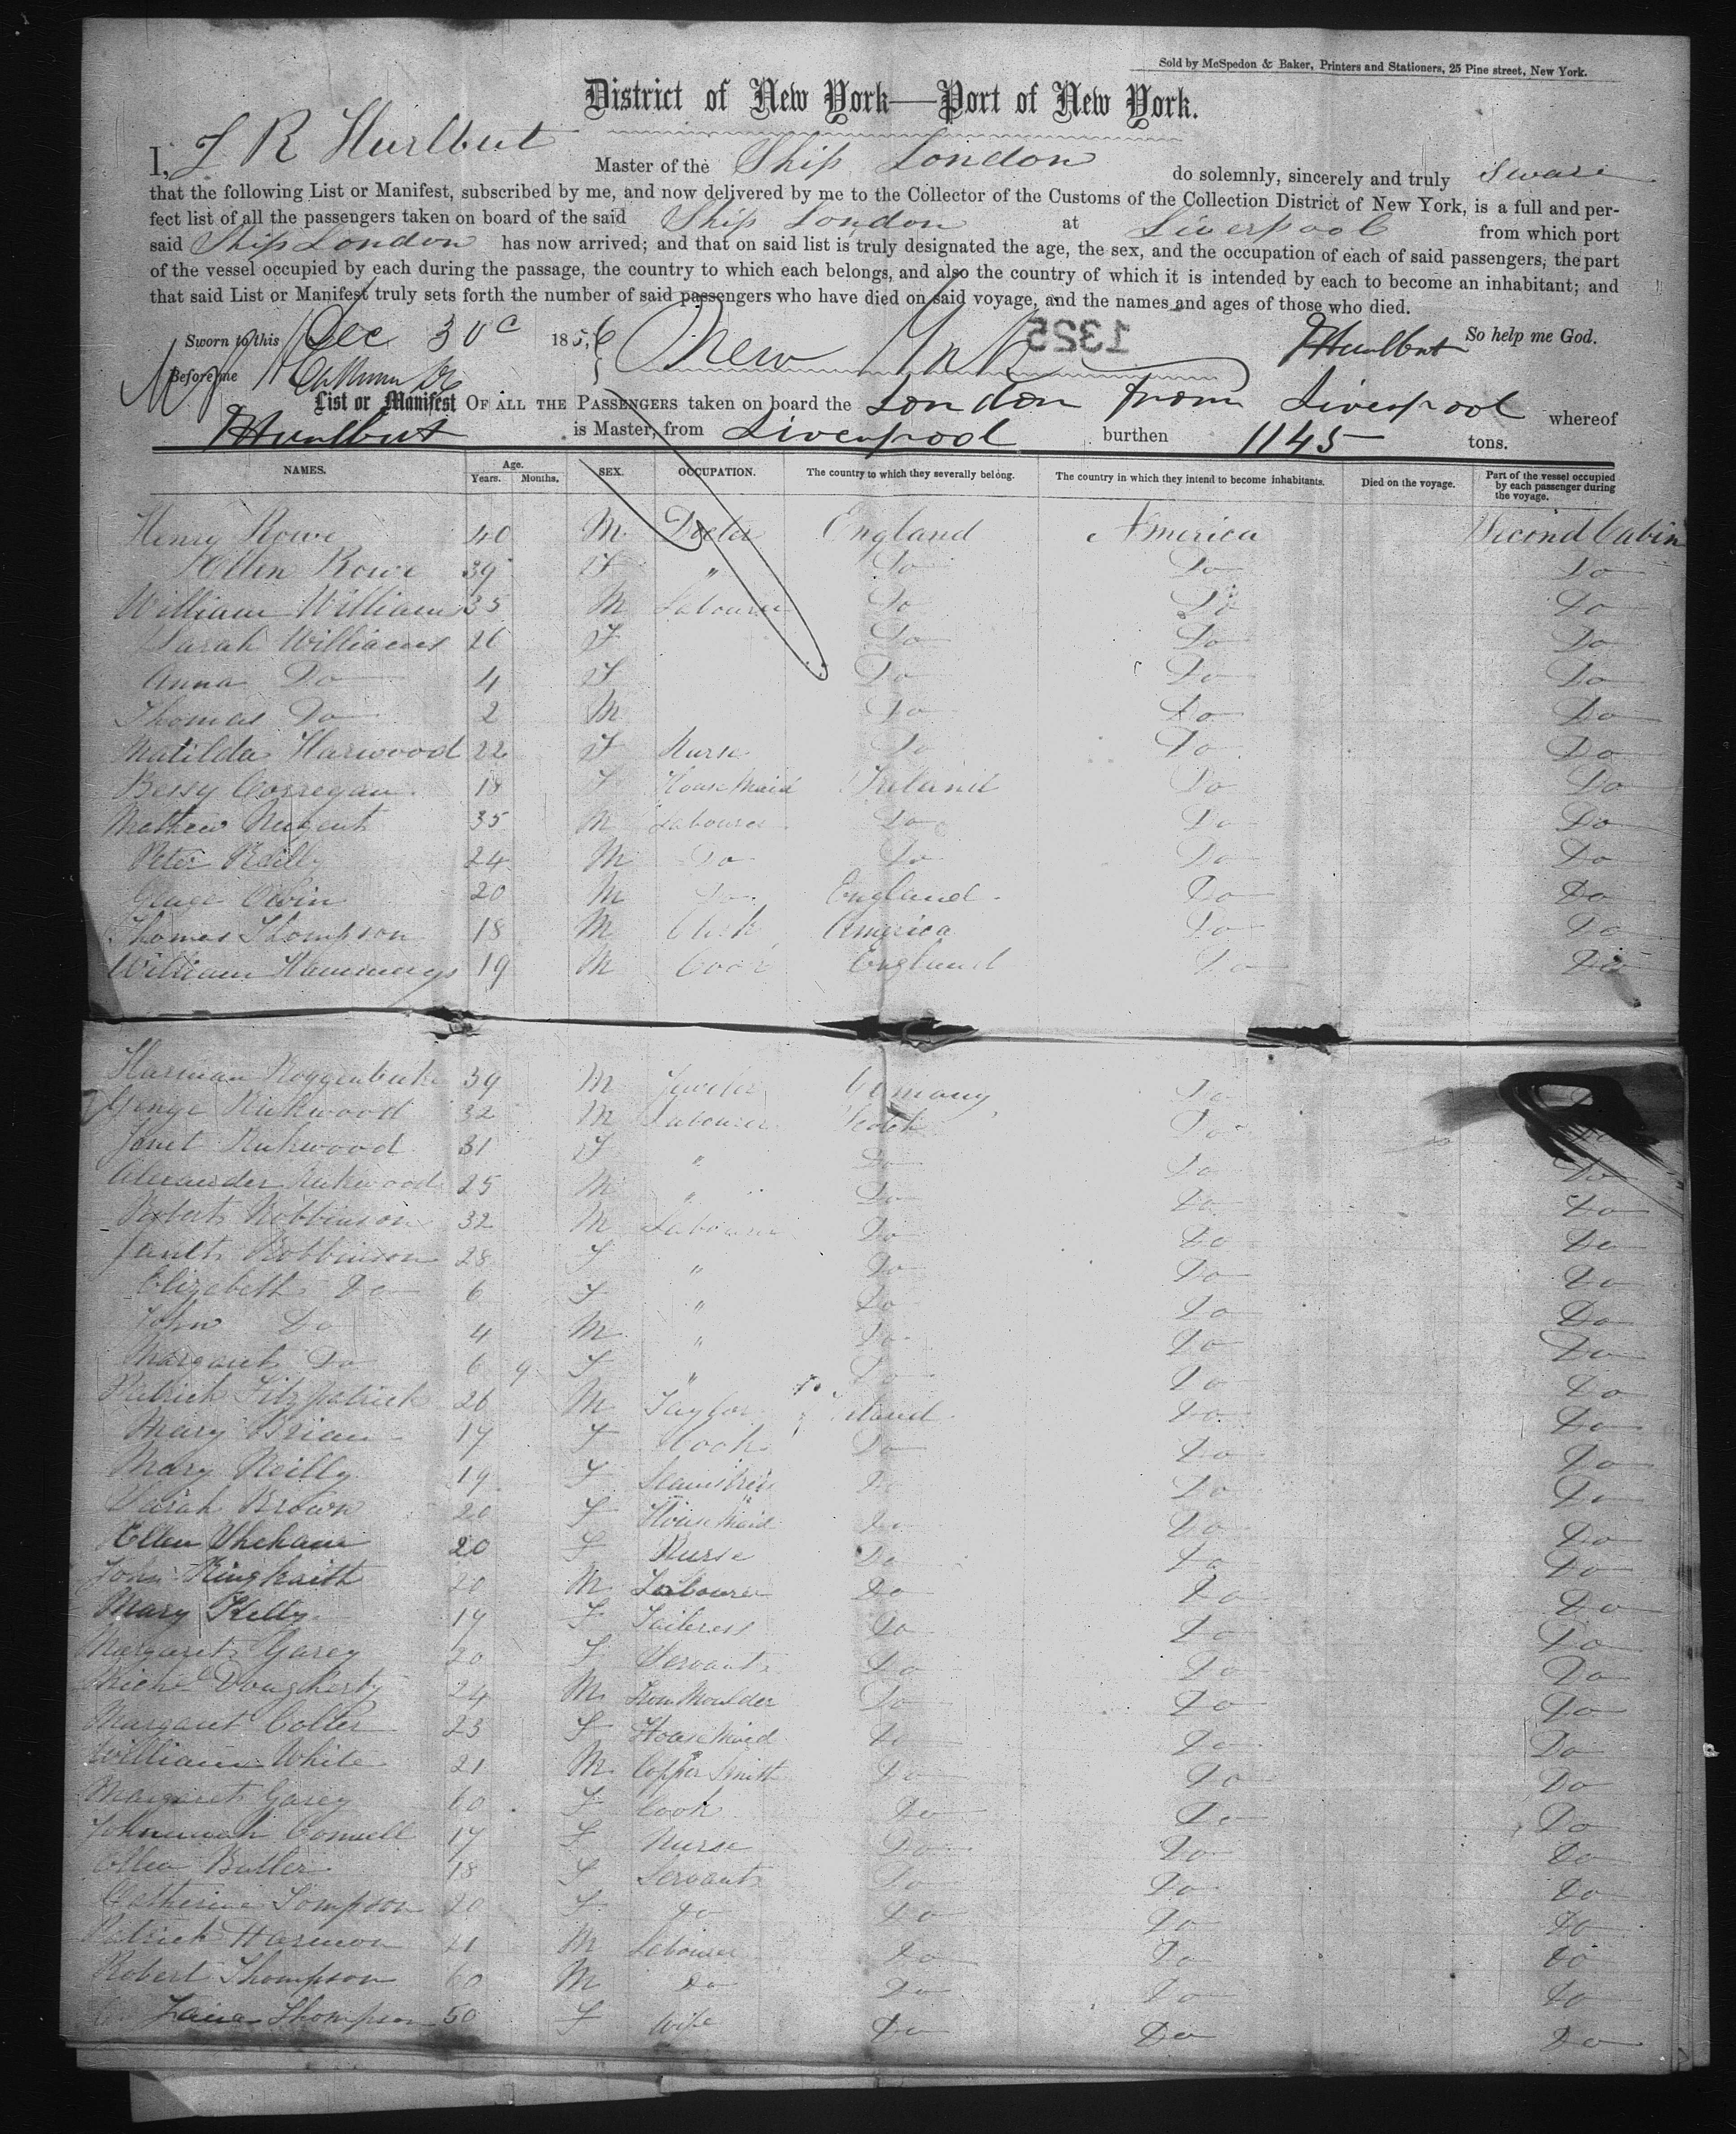 Sold by McSpedon & Baker, Printers and Stationers, 25 Pine street, New York.
District of New York—Port of New York.
I, F R Hurlbut Master of the Ship London do solemnly, sincerely and truly Swair
that the following List or Manifest, subscribed by me, and now delivered by me to the Collector of the Customs of the Collection District of New York, is a full and per-
fect list of all the passengers taken on board of the said Ship London at Liverpool from which port
said Ship London has now arrived; and that on said list is truly designated the age, the sex, and the occupation of each of said passengers, the part
of the vessel occupied by each during the passage, the country to which each belongs, and also the country of which it is intended by each to become an inhabitant; and
that said List or Manifest truly sets forth the number of said passengers who have died on said voyage, and the names and ages of those who died.
Sworn to this Dec 30 1856 New York 1325 Hurlbut So help me God.
Before me
List or Manifest OF ALL THE PASSENGERS taken on board the London From Liverpool whereof
Hurlbut is Master, from Liverpool burthen 1145 tons.
NAMES. Age. Years. Months. SEX. OCCUPATION. The country to which they severally belong. The country in which they intend to become inhabitants. Died on the voyage. Part of the vessel occupied by each passenger during the voyage.
Henry Rowe 40 M England America Second Cabin
Ellen Rowe 39 F " Do Do Do
William William 35 M Labourer Do Do Do
Sarah Williams 26 F Do Do Do
Anna Do 4 F Do Do Do
Thomas Do 2 M Do Do Do
Matilda Harwood 22 F Nurse Do Do Do
Bessy Corregan 18 F House Maid Ireland Do Do
Mathew Nugent 35 M Labourer Do Do Do
Peter Reilly 24 M Do Do Do Do
20 M Do England Do Do
Thomas Thompson 18 M Clerk America Do Do
William Hammings 19 M England Do Do
Harman 39 M Jeweler Do
George Kirkwood 32 M Labourer Scotch Do Do
Janet Kirkwood 31 F " Do Do Do
Alexander Kirkwood 25 M " Do Do Do
Robert Robbinson 32 M Labourer Do Do Do
Robbinson 28 F " Do Do Do
Elizebeth Do 6 F " Do Do Do
John Do 4 M " Do Do Do
Margaret Do 6 9 F " Do Do Do
Patrick Fitzpatrick 26 M Taylor Ireland Do Do
Mary Brian 17 F Cook Do Do Do
Mary Reilly 19 F Do Do Do
Sarah Brown 20 F House Maid Do Do Do
Ellen Shehane 20 F Nurse Do Do Do
John 20 M Labourer Do Do Do
Mary Kelly 19 F Taileress Do Do Do
Margaret Garey 20 F Servant Do Do Do
Dougherty 24 M Iron Moulder Do Do Do
Margaret Coller 23 F House Maid Do Do Do
William White 21 M Copper Smith Do Do Do
Margaret Garey 60 F Cook Do Do Do
Connell 17 F Nurse Do Do Do
Ellen Butler 18 F Servant Do Do Do
Catherine Tompson 20 F Do Do Do Do
Patrick Harmon 21 M Labourer Do Do Do
Robert Thompson 60 M Do Do Do Do
Thompson 50 F Wife Do Do Do